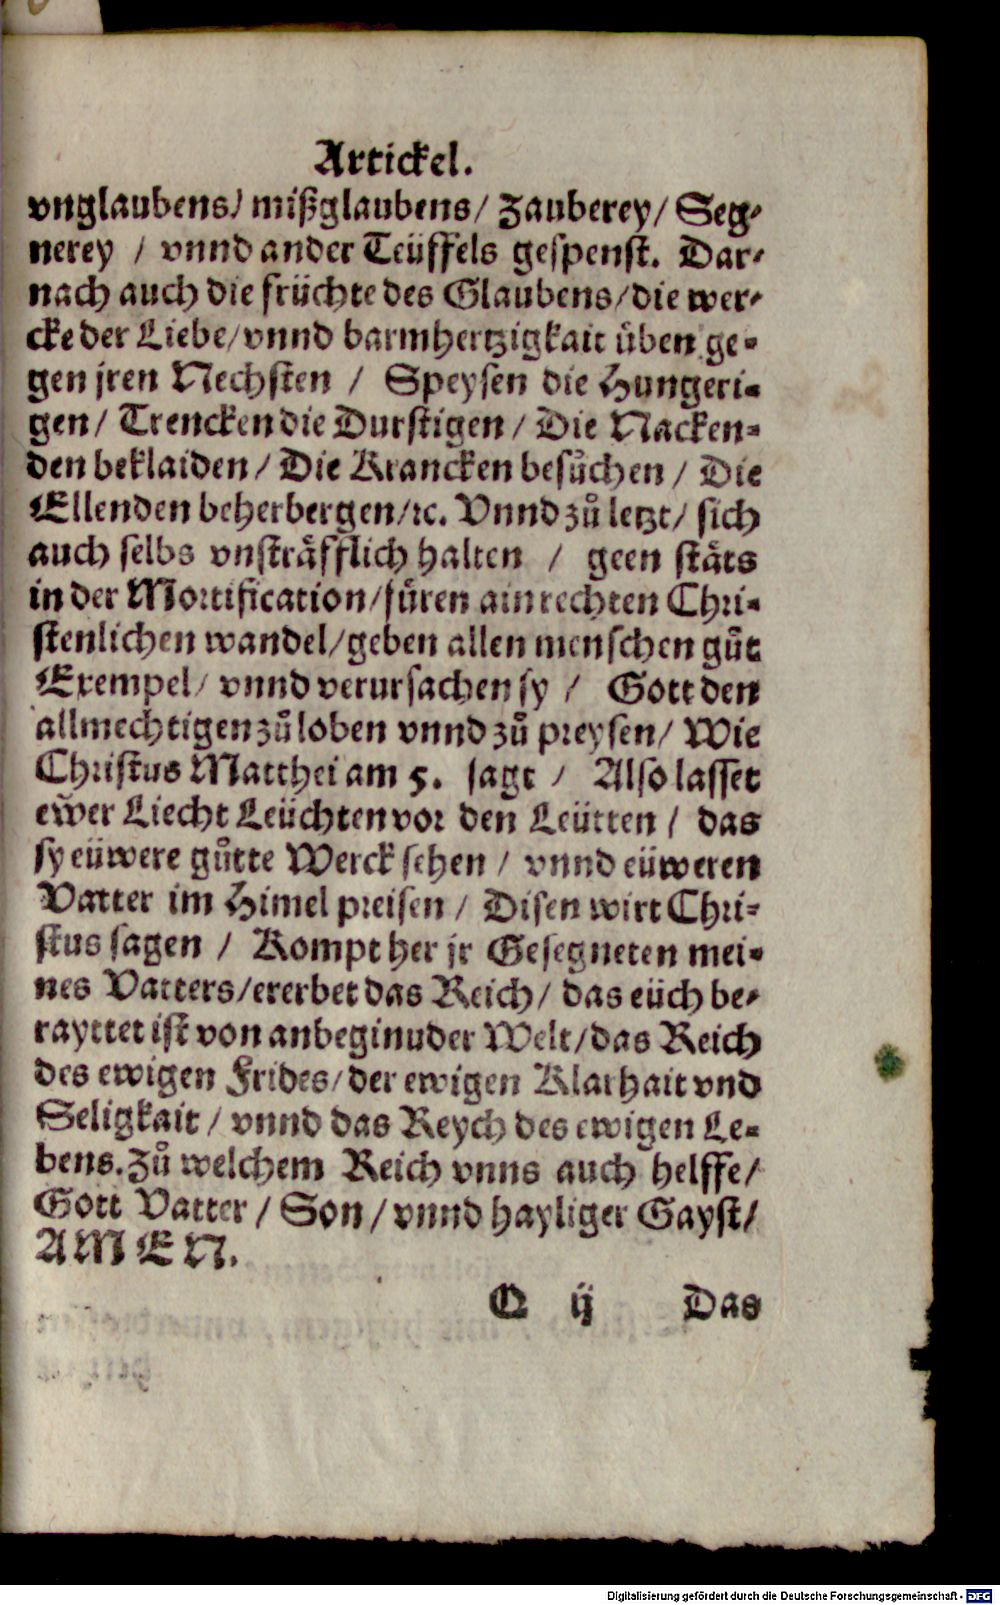 Artickel.
vnglaubens/ mißglaubens/ Zauberey/ Seg-
nerey / vnnd ander Teüffels gespenst. Dar-
nach auch die früchte des Glaubens/die wer-
cke der Liebe/vnnd barmhertzigkait üben ge-
gen jren Nechsten / Speysen die Hungeri-
gen/ Trencken die Durstigen/ Die Nacken-
den beklaiden/ Die Krancken besůchen/ Die
Ellenden beherbergen/ꝛc. Vnnd zů letzt/ sich
auch selbs vnsträfflich halten / geen stäts
in der Mortification/füren ain rechten Chri-
stenlichen wandel/geben allen menschen gůt
Exempel/ vnnd verursachen sy / Gott den
allmechtigen zů loben vnnd zů preysen/ Wie
Christus Matthei am 5. sagt / Also lasset
ew̃er Liecht Leüchten vor den Leütten / das
sy eüwere gůtte Werck sehen / vnnd eüweren
Vatter im Himel preisen / Disen wirt Chri-
stus sagen / Kompt her jr Gesegneten mei-
nes Vatters/ererbet das Reich/ das eüch be-
rayttet ist von anbeginn der Welt/das Reich
des ewigen Frides/der ewigen Klarhait vnd
Seligkait/ vnnd das Reych des ewigen Le-
bens. Zů welchem Reich vnns auch helffe/
Gott Vatter/ Son/ vnnd hayliger Gayst/
AMEN.
Q ij Das
Digitalisierung gefördert durch die Deutsche Forschungsgemeinschaft - DFG